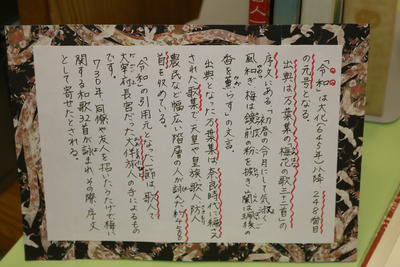 「令和」は大化(645年)以降248番目
の元号となる。
出典は万葉集の梅花の歌三十二首の
序文にある「初春の令月にして、気淑く
風和ぎ、梅は鏡前の粉を披き、蘭は珮後の
香を薫らす」の文言。
出典となった万葉集は、奈良時代に編さん
された歌集で天皇や皇族、歌人、防人
農民など幅広い階層の人が詠んだ約4500
首を収めている。
「令和」の引用元となった一節は、歌人で
大宰府長官だった大伴旅人の手によるもの
です。
730年、同僚や友人を招いたうたげで梅に
関する和歌32首が詠まれ、その際、序文
として寄せたとされる。